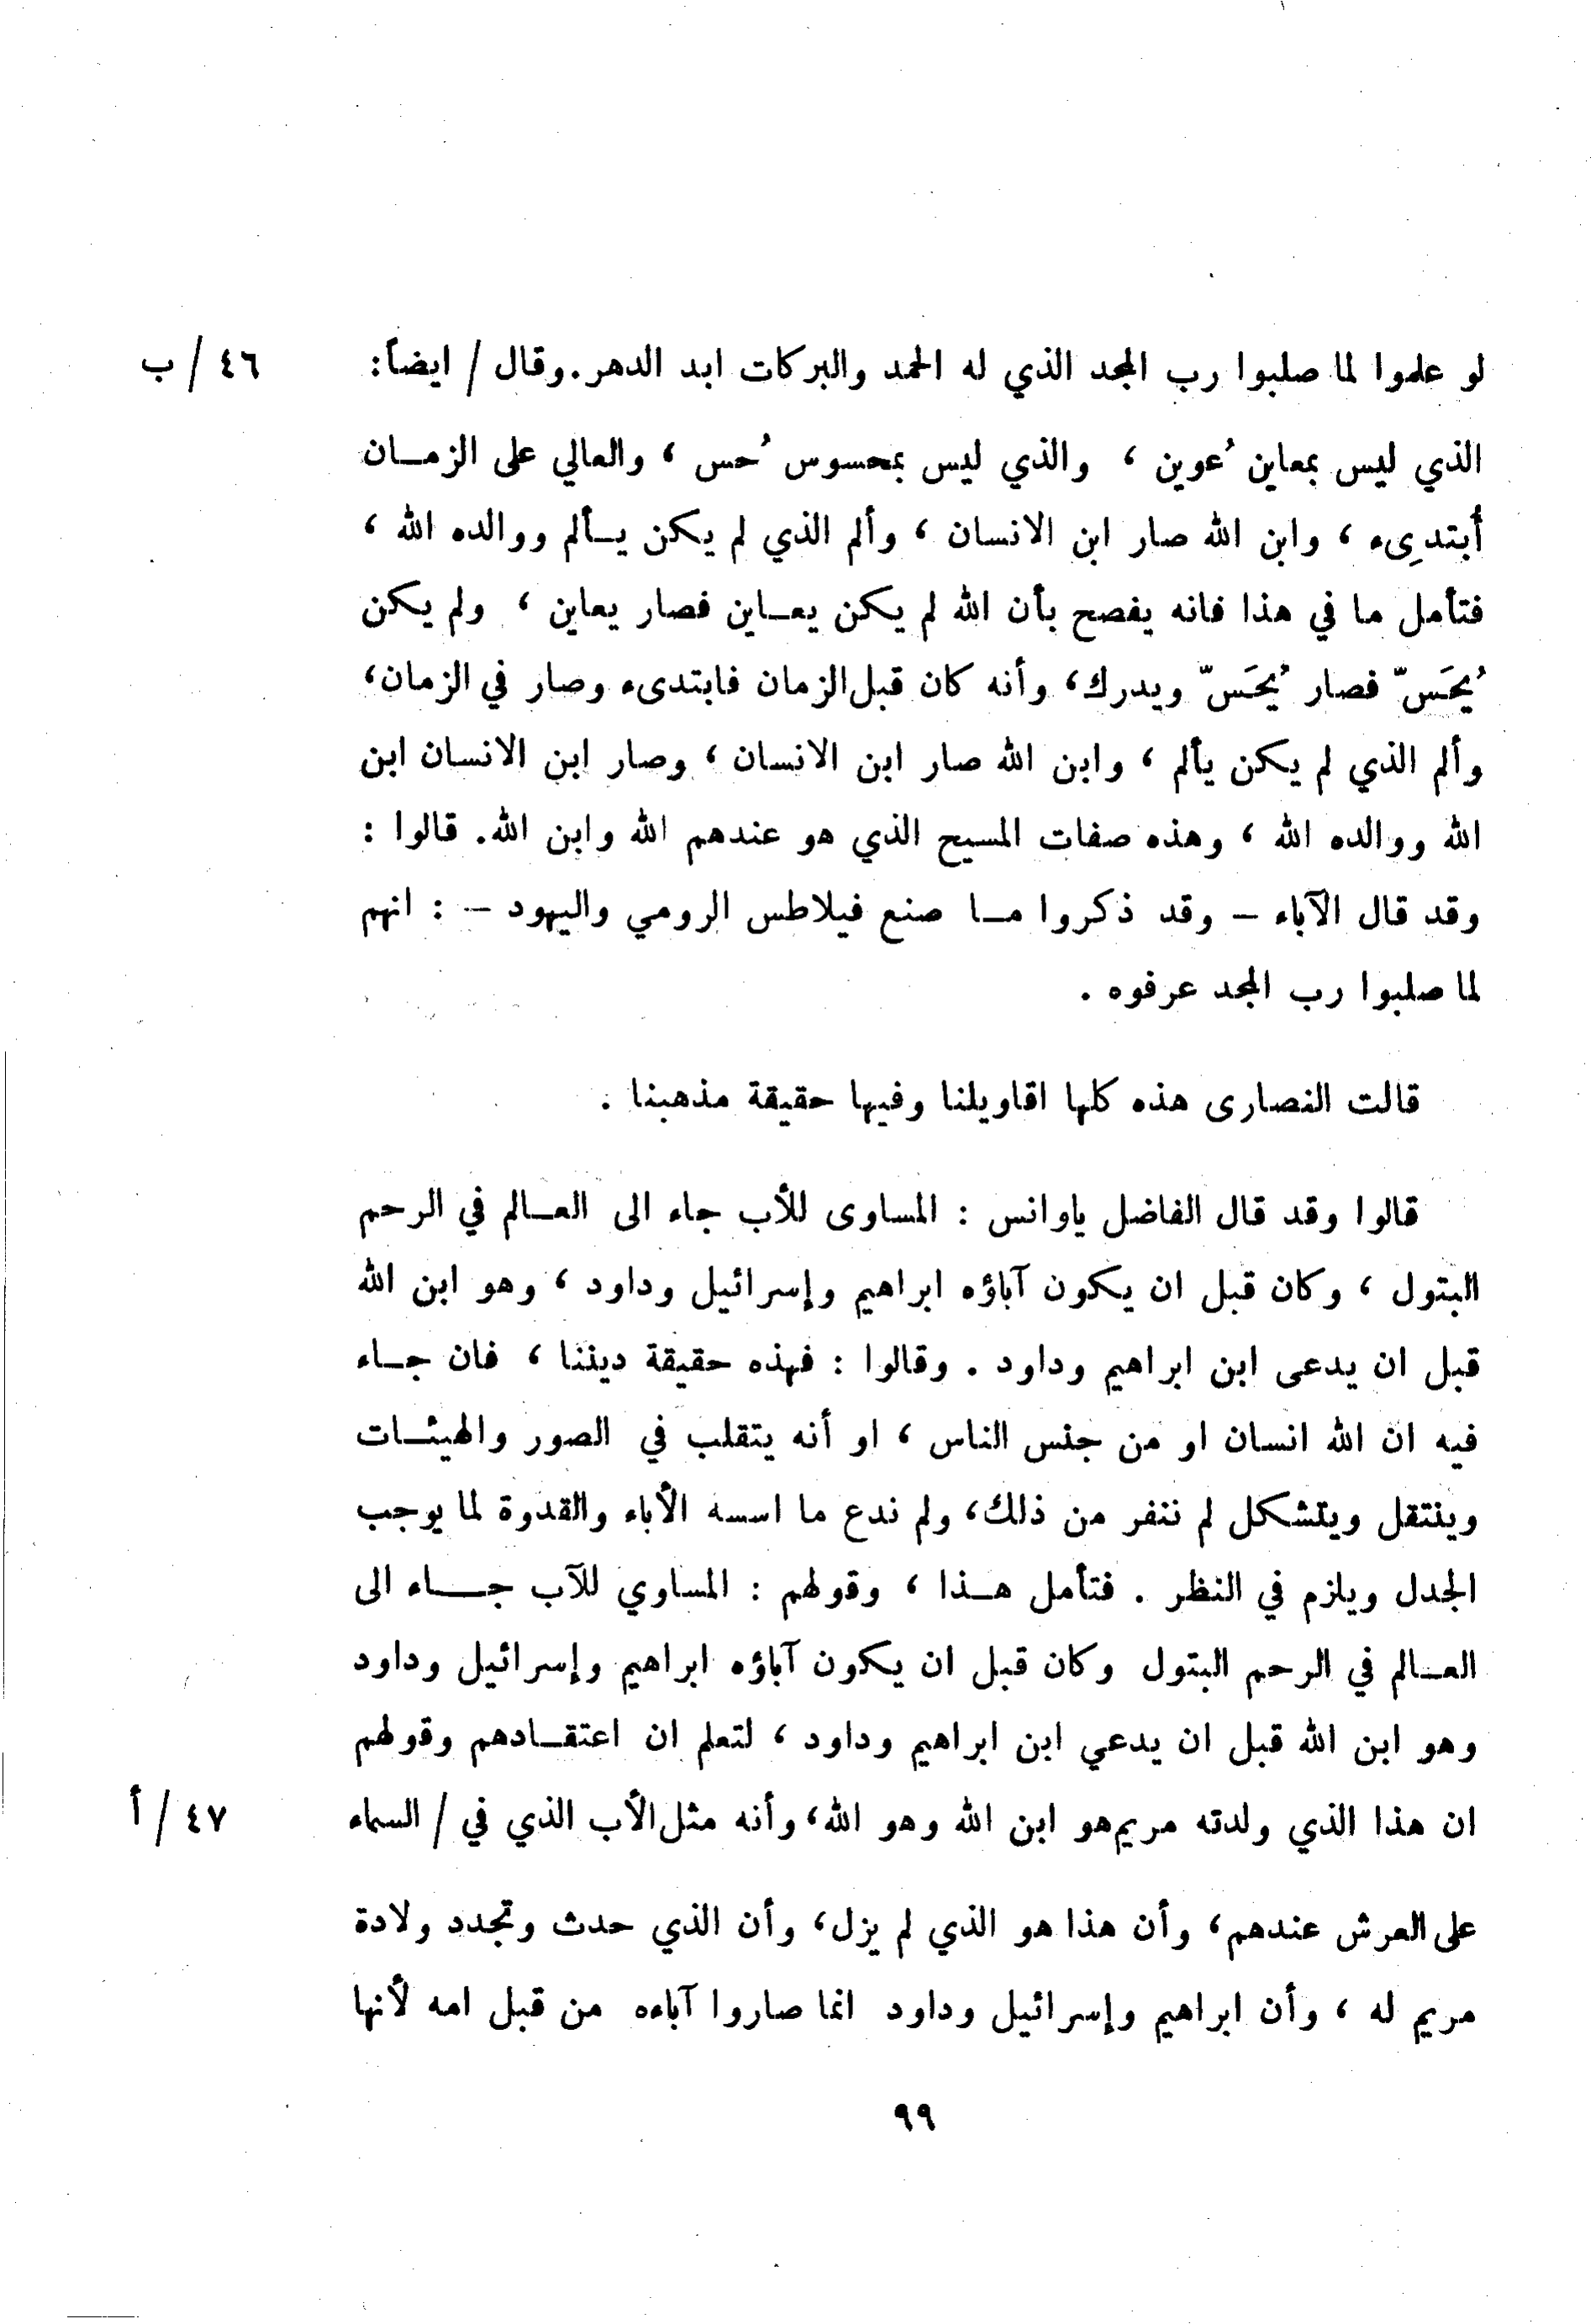 لو علموا لما صلبوا رب المجد الذي له الحمد والبركات ابد الدهر. وقال / ايضاً: ٤٦ / ب
الذي ليس بمعاين عُوين ، والذي ليس بمحسوس حُس ، والعالي على الزمـان
أُبتدِىء ، وابن الله صار ابن الانسان ، وألم الذي لم يكن يـألم ووالده الله ،
فتأمل ما في هذا فانه يفصح بأن الله لم يكن يعـاين فصار يعاين ، ولم يكن
يُحَسّ فصار يُحَسّ ويدرك، وأنه كان قبل الزمان فابتدىء وصار في الزمان،
وألم الذي لم يكن يألم ، وابن الله صار ابن الانسان ، وصار ابن الانسان ابن
الله ووالده الله ، وهذه صفات المسيح الذي هو عندهم الله وابن الله. قالوا :
وقد قال الآباء – وقد ذكروا مـا صنع فيلاطس الرومي واليهود – : انهم
لما صلبوا رب المجد عرفوه .
قالت النصارى هذه كلها اقاويلنا وفيها حقيقة مذهبنا .
قالوا وقد قال الفاضل ياوانس : المساوى للأب جاء الى العـالم في الرحم
البتول ، وكان قبل ان يكون آباؤه ابراهيم وإسرائيل وداود ، وهو ابن الله
قبل ان يدعى ابن ابراهيم وداود . وقالوا : فهذه حقيقة ديننا ، فان جـاء
فيه ان الله انسان او من جنس الناس ، او أنه يتقلب في الصور والهيئـات
وينتقل ويتشكل لم ننفر من ذلك، ولم ندع ما اسسه الأباء والقدوة لما يوجب
الجدل ويلزم في النظر . فتأمل هـذا ، وقولهم : المساوي للآب جـــاء الى
العـالم في الرحم البتول وكان قبل ان يكون آباؤه ابراهيم وإسرائيل وداود
وهو ابن الله قبل ان يدعي ابن ابراهيم وداود ، لتعلم ان اعتقـادهم وقولهم
ان هذا الذي ولدته مريم هو ابن الله وهو الله، وأنه مثل الأب الذي في / السماء ٤٧ / أ
على العرش عندهم، وأن هذا هو الذي لم يزل، وأن الذي حدث وتجدد ولادة
مريم له ، وأن ابراهيم وإسرائيل وداود انما صاروا آباءه من قبل امه لأنها
٩٩